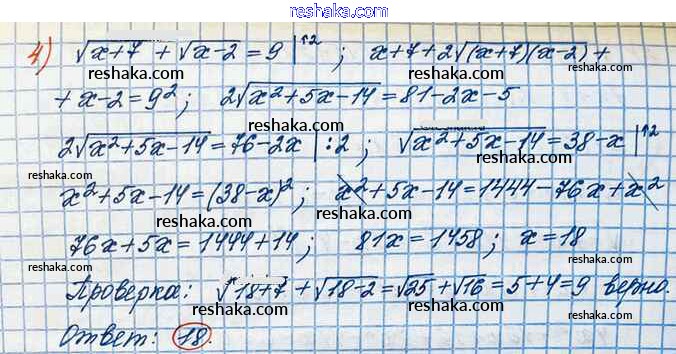 reshaka.com
4) √x+7 + √x-2 = 9 |↑2 ; x+7+2√(x+7)(x-2) +
reshaka.com reshaka.com
+ x-2=9²; 2√x²+5x-14=81-2x-5
reshaka.com
2√x²+5x-14=76-2x |:2 ; √x²+5x-14=38-x |↑2
reshaka.com reshaka.com
x²+5x-14=(38-x)²; x²+5x-14=1444-76x+x²
reshaka.com reshaka.com
76x+5x=1444+14; 81x=1458; x=18
reshaka.com reshaka.com reshaka.com
Проверка: √18+7 + √18-2=√25+√16=5+4=9 верно.
reshaka.com reshaka.com
Ответ: 18.
reshaka.com